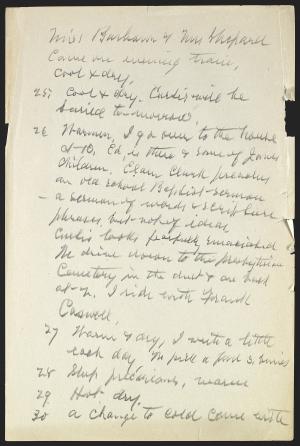 Miss Barbara & Mrs Shepard
Came on evening train,
Cool & dry,
25, Cool & dry. Curtis will be
buried tomorrow,
26 Warmer, I go over to the house
at 10, Ed, is there & some of James
Children, Elam Clark preaches
an old school Baptist sermon
- a sermon of words & scripture
phrases, but not of ideas
Curtis looks fearfully emaciated
We drive down to the Presbyterian
Cemetery in the dust & are back
at 2, I ride with Frank
Caswell,
27 Warm & dry, I write a little
each day, We pick a for
28 Ship, warm
29 Hot dry,
30 a change to cold came with